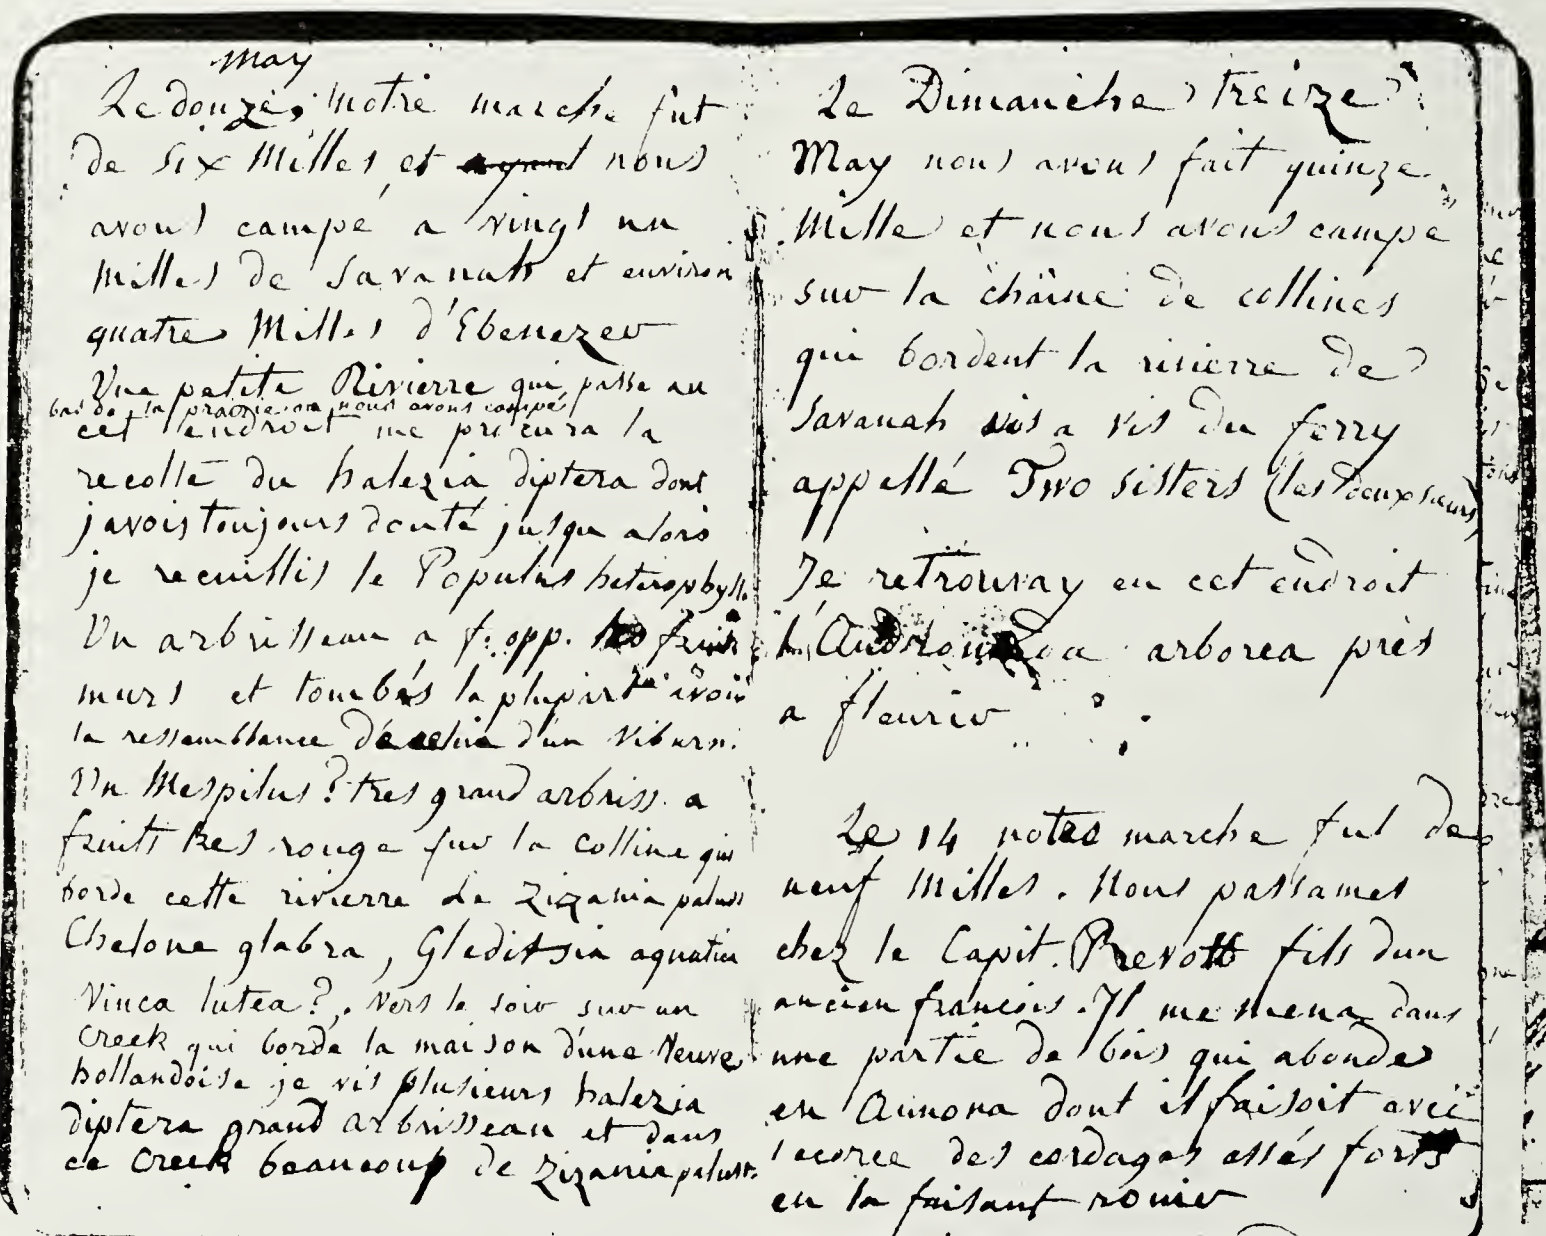 May
Le douze, Notre marche fut
de six Milles et nous
avons campé a vingt un
Milles de Savanah et environ
quatre Milles d'Ebenezer
Une petite Rivierre qui passe au
bas de la prairie ou nous avons campé
cet endroit me procura la
recolte du halezia diptera dont
javois toujours douté jusqu alors
je recuillis le Populus heterophyll.
Un arbrisseau a f. opp. fruits
murs et tombés la plupart avoit
la ressemblance d'un Viburn.
Un Mespilus? tres grand arbriss. a
fruit tres rouge sur la colline qui
borde cette rivierre Le Zizania palust
Chelone glabra, Gleditsia aquatica
Vinca lutea?. Vers le soir sur un
Creek qui borde la maison d'une Veuve
hollandoise je vis plusieurs halezia
diptera grand arbrisseau et dans
ce Creek beaucoup de Zizania palust.
Le Dimanche treize
May nous avons fait quinze
Mille et nous avons campe
sur la chaine de collines
qui bordent la rivierre de
Savanah vis a vis du ferry
appellé Two sisters (les deux sœurs)
Je retrouvay en cet endroit
l'Andromeda arborea près
a fleurir
Le 14 notre marche fut de
neuf Milles. Nous passames
chez le Capit. Prevott fils dun
ancien francois. Il me mena dans
une partie de bois qui abonde
en Annona dont il faisoit avec
l'ecorce des cordages assés forts
en la faisant rouir